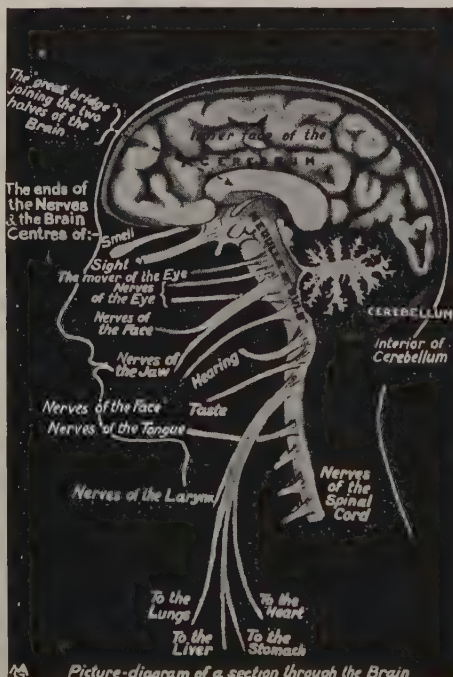 The "great bridge"
joining the two
halves of the
Brain
Inner face of the
CEREBRUM
The ends of
the Nerves
& the Brain
Centres of:-
Smell
Sight
The mover of the Eye
Nerves
of the Eye
Nerves of
the Face
Nerves of
the Jaw
Hearing
Nerves of the Face
Taste
Nerves of the Tongue
Nerves of the Larynx
CEREBELLUM
Interior of
Cerebellum
Nerves
of the
Spinal
Cord
To the
Lungs
To the
Heart
To the
Liver
To the
Stomach
Picture-diagram of a section through the Brain